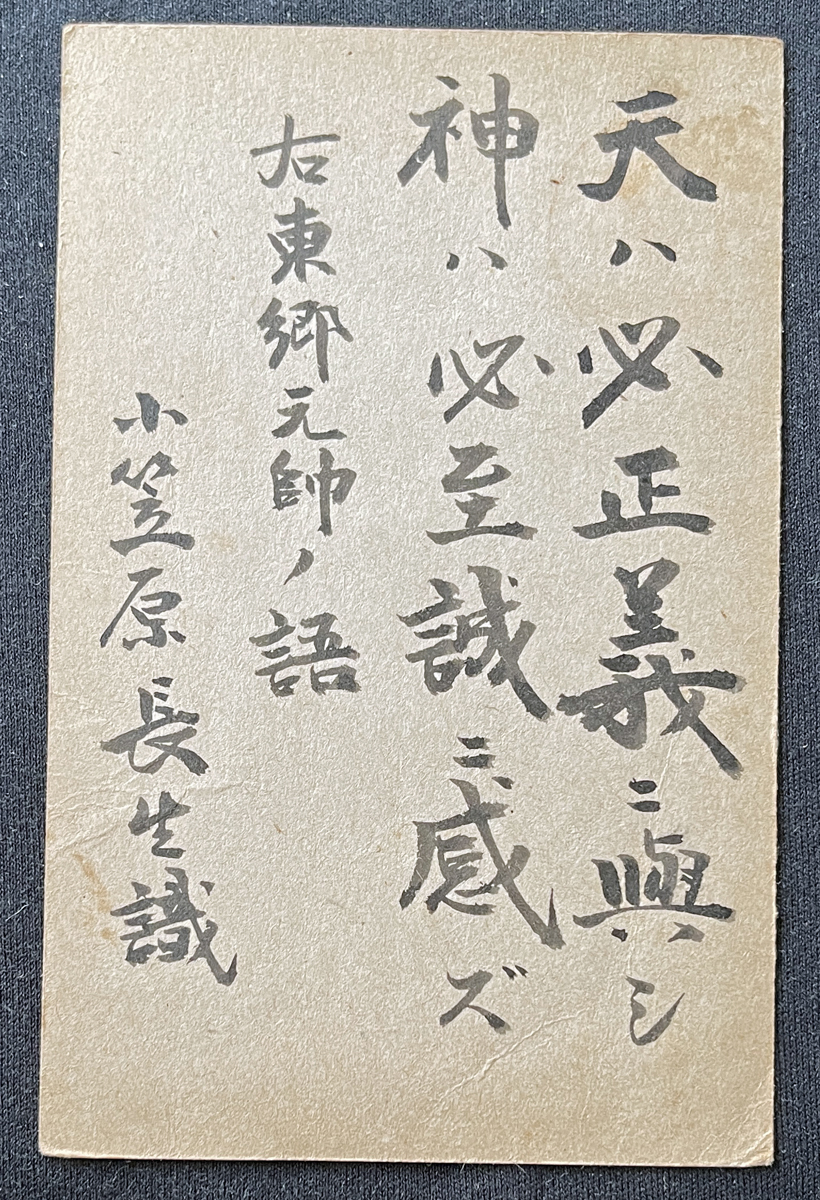 天ハ必正義ニ與シ
神ハ必至誠ニ感ズ
右東郷元帥ノ語
小笠原長生識